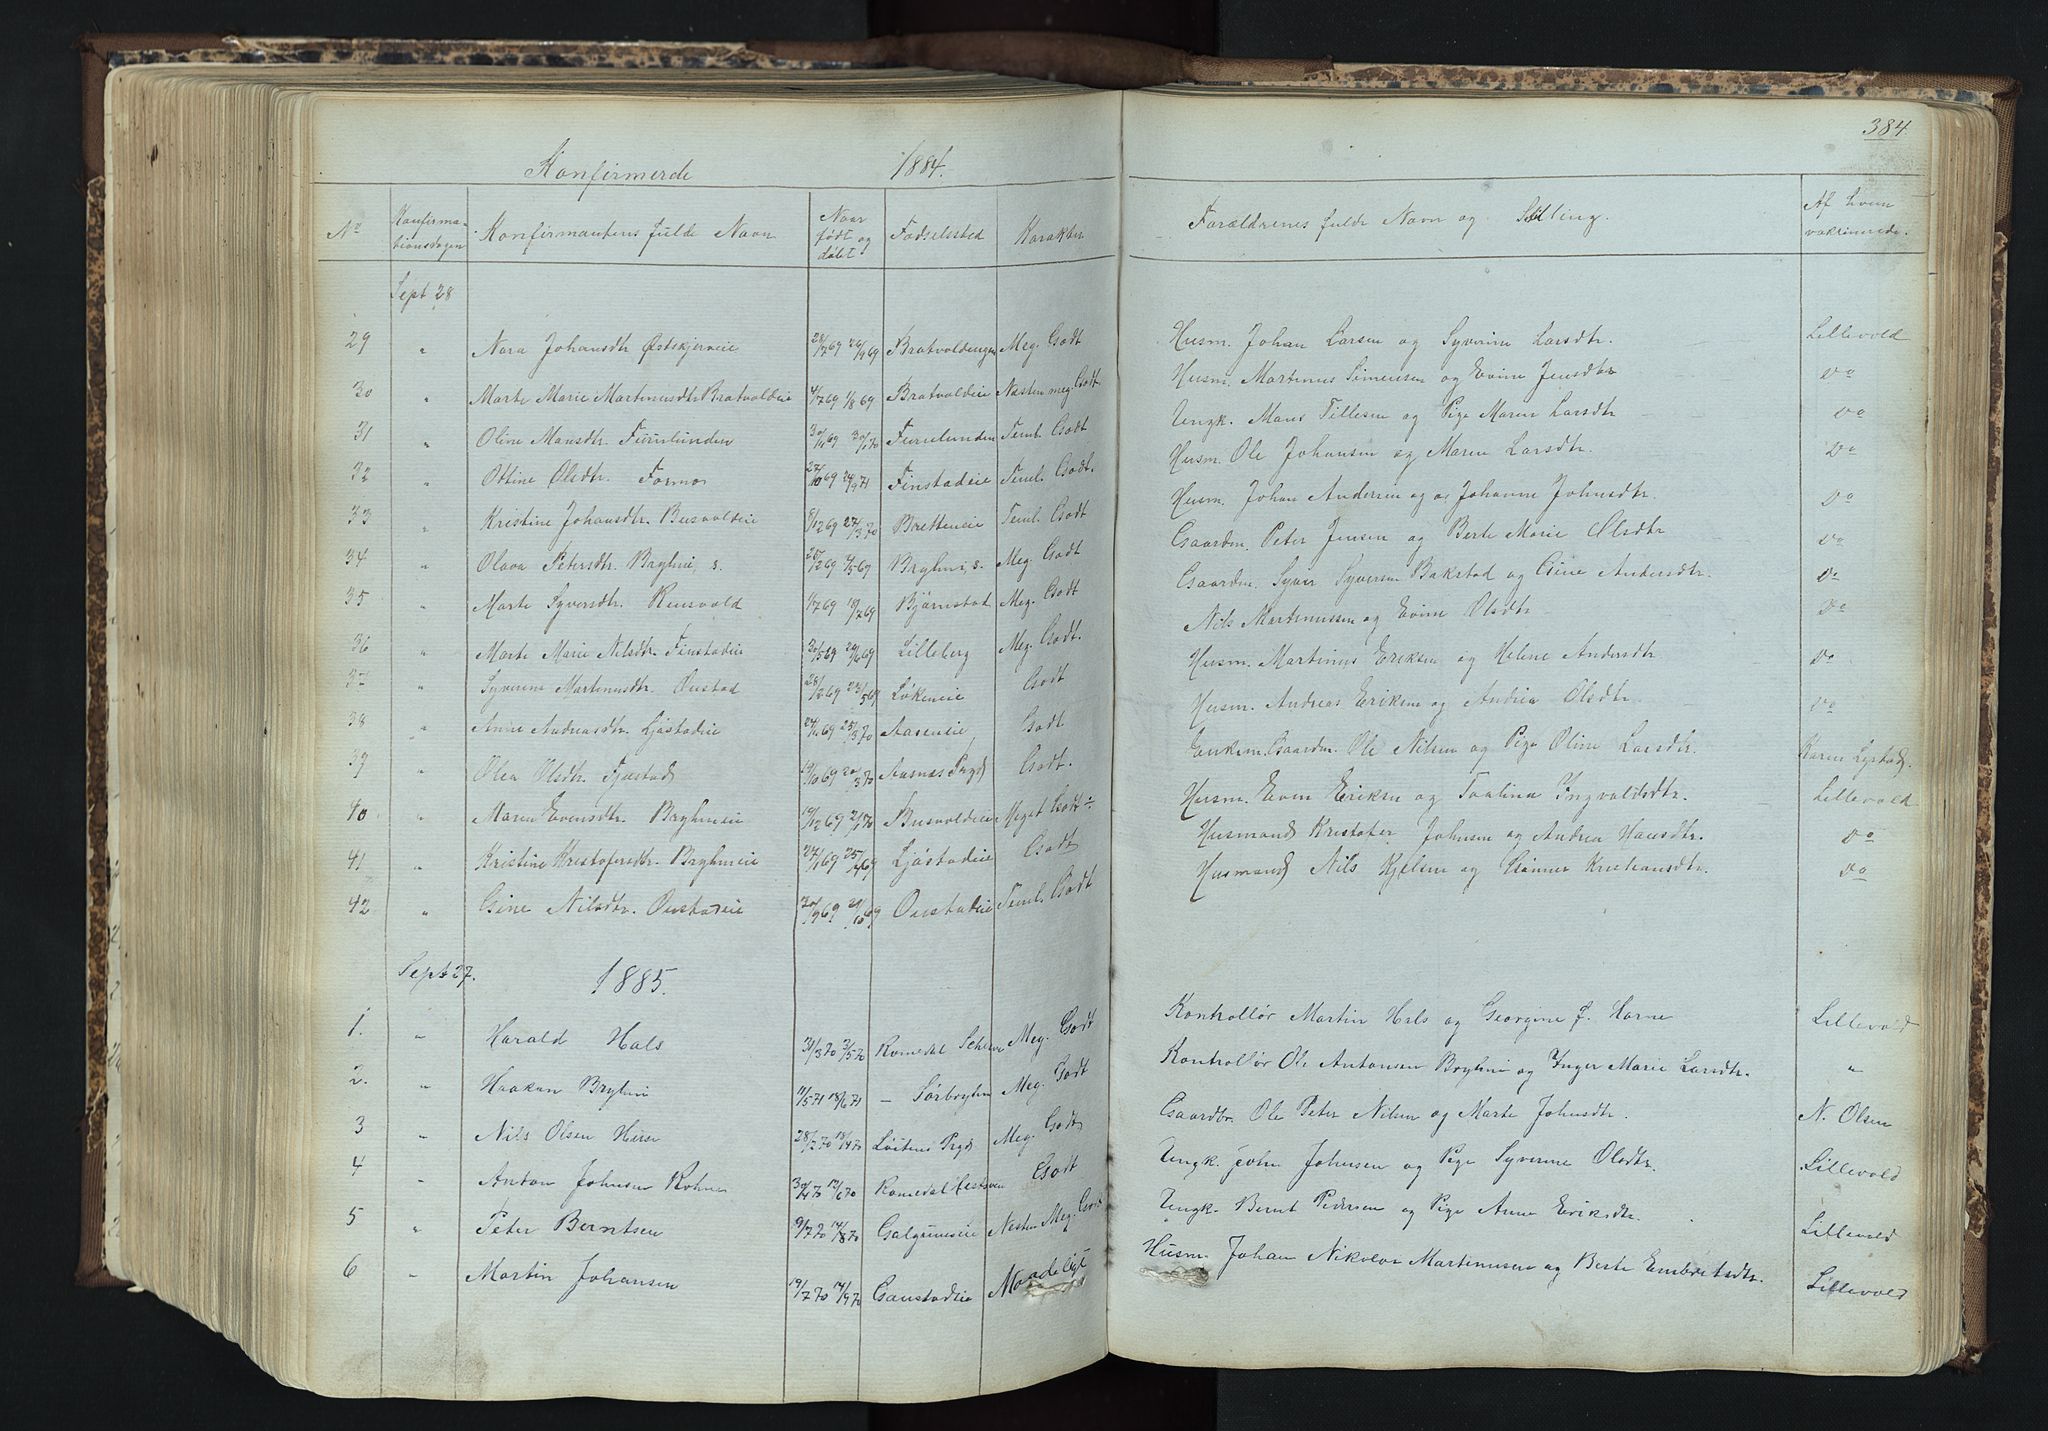 384.
Konfirmerde 1884.
No Konfirmationsdagen Konfirmantens fulde Navn Naar født og døbt Fødselssted Karakter Forældrenes fulde Navn og Stilling. Af hvem vakcinerede.
Sept 28
29 " Nora Johansdtr Østskjerveie 28/7 69 26/9 69 Bratvoldengen Meg. Godt Husm. Johan Larsen og Syverine Larsdtr. Lillevold
30 " Marte Marie Martinusdtr Bratvoldeie 4/7 69 1/8 69 Bratvoldeie Næsten meg. Godt. Husm. Martinus Simensen og Evine Jensdtr do
31 " Oline Mansdtr. Furulunden Furulunden Teml. Godt Ungk. Mans Tillesen og Pige Maren Larsdtr do
32 " Ottine Olsdtr. Formo 27/10 69 Finstadeie Teml. Godt. Husm. Ole Johansen og Maren Larsdtr. do
33 " Kristine Johansdtr. Busvoldeie 8/12 69 27/3 70 Bretteneie Teml. Godt Husm. Johan Andersen og Johanne Johnsdtr. do
34 " Olava Petersdtr. Bryhni, s. 25/2 69 4/5 69 Bryhni, s. Meg. Godt Gaardm. Peter Jensen og Berte Marie Olsdtr do
35 " Marte Syversdtr. Rensvold 1/7 69 Bjørnstad Meg. Godt Gaardm. Syver Syversen Bakstad og Gine Andersdtr. do
36 " Marte Marie Nilsdtr. Finstadeie 30/5 69 Lilleberg Meg. Godt. Nils Martinussen og Evine Olsdtr do
37 " Syverine Martinusdtr. Oustad 28/2 69 23/5 69 Løkeneie Godt Husm. Martinus Eriksen og Helene Andersdtr do
38 " Anne Andreasdtr. Ljøstadeie 25/3 70 Aaseneie Godt Husm. Andreas Eriksen og Andrea Olsdtr. do
39 " Olea Olsdtr. Fjæstad 19/10 69 20/3 70 Aasnæs Prgd Godt. Enkem. Gaardm. Ole Nilsen og Pige Oline Larsdtr. Karen Lystad.
40 " Maren Evensdtr. Bryhnieie 19/12 69 2/1 70 Busvoldeie Meget Godt ÷ Husm. Even Eriksen og Taalina Ingvoldsdtr. Lillevold
41 " Kristine Kristofersdtr. Bryhnieie Ljøstadeie Godt Husmand Kristofer Johnsen og Andrea Hansdtr. do
42 " Gine Nilsdtr. Oustadeie Oustadeie Teml. Godt Husmand Nils Kjelsen og Gunner Kristiansdtr. do
Sept 27. 1885.
1. " Harald Hals 31/3 70 3/5 70 Romedal Meg. Godt Kontrollør Martin Hals og Georgine F. Horne Lillevold
2. " Haakon Bryhni 11/5 71 18/6 71 – Sørbryhni Meg. Godt Kontrollør Ole Antonsen Bryhni og Inger Marie Larsdtr. "
3 " Nils Olsen 28/2 70 18/4 70 Løitens Prgd. Meg. Godt Gaardbr. Ole Peter Nilsen og Marte Johnsdtr. N. Olsen
4 " Anton Johnsen 30/4 70 12/6 70 Romedal Godt Ungk. John Johnsen og Pige Syverine Olsdtr. Lillevold
5 " Peter Berntsen 9/7 70 14/8 70 Galgumseie Næsten Meg. Godt Ungk. Bernt Pedersen og Pige Anne Eriksdtr. Lillevold
6 " Martin Johansen 19/7 70 4/9 70 Gaustadeie Maadeligt Husm. Johan Nikolai Martinusen og Berte Embretsdtr. Lillevold